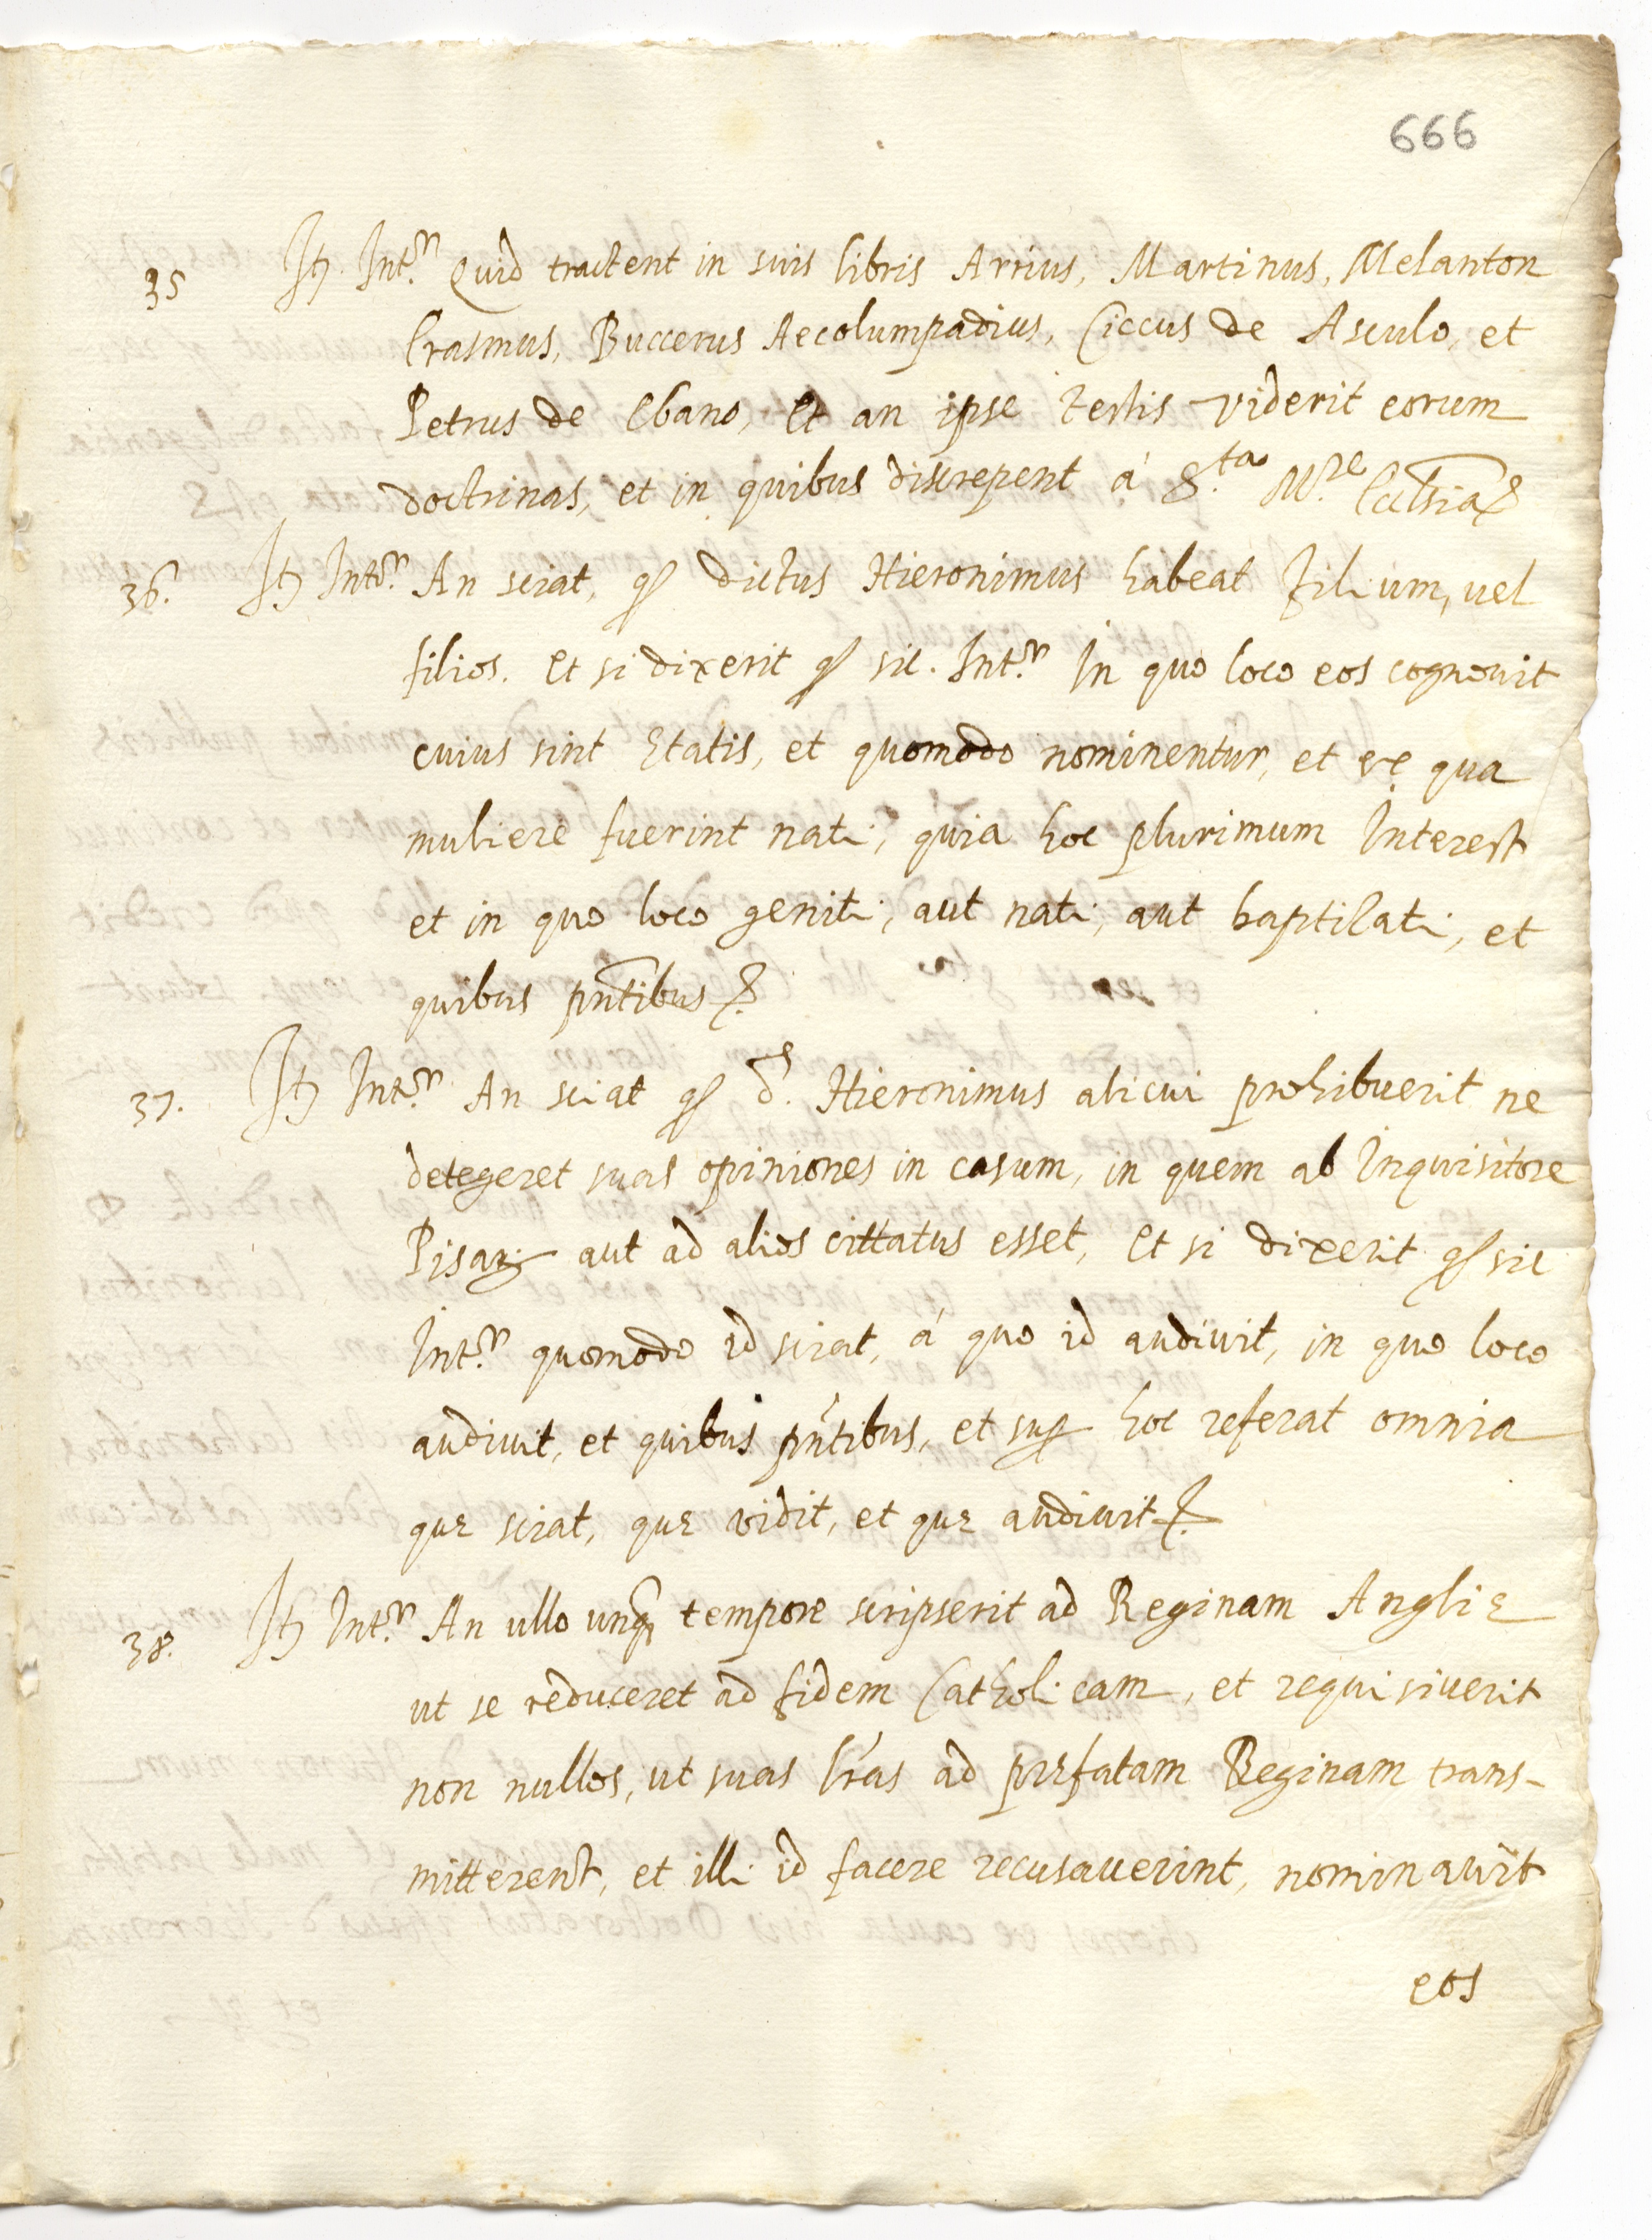 666
35 It. Int.r Quid tractent in suis libris Arrius, Martinus, Melanton
Erasmus, Buccerus Aecolumpadius, Ciccus de Asculo, et
Petrus de Ebano, Et an ipse testis viderit eorum
doctrinas, et in quibus discrepent á S.ta M.re Ecclesia &
36. It. Int.r An sciat, q. dictus Hieronimus habeat filium, uel
filios. Et si dixerit q. sic. Int.r In quo loco eos cognouit
cuius sint ętatis, et quomodo nominentur, et ex qua
muliere fuerint nati, quia hoc plurimum Interest
et in quo loco geniti, aut nati, aut baptizati, et
quibus pn̄tibus &.
37. It. Int.r An sciat q. d.s Hieronimus alicui prohibuerit ne
detegeret suas opiniones in casum, in quem ab Inquisitore
Pisarū aut ad alios cittatus esset, Et si dixerit q. sic
Int.r quomodo id sciat, á quo id audiuit, in quo loco
audiuit, et quibus pn̄tibus, et sup. hoc referat omnia
quę sciat, quę vidit, et quę audiuit &.
38. It. Int.r An ullo unq. tempore scripserit ad Reginam Anglię
ut se reduceret ad fidem Catholicam, et requisiuerit
non nullos, ut suas lr̄as ad pręfatam Reginam trans-
mitterent, et illi id facere recusauerint, nominauit
eos